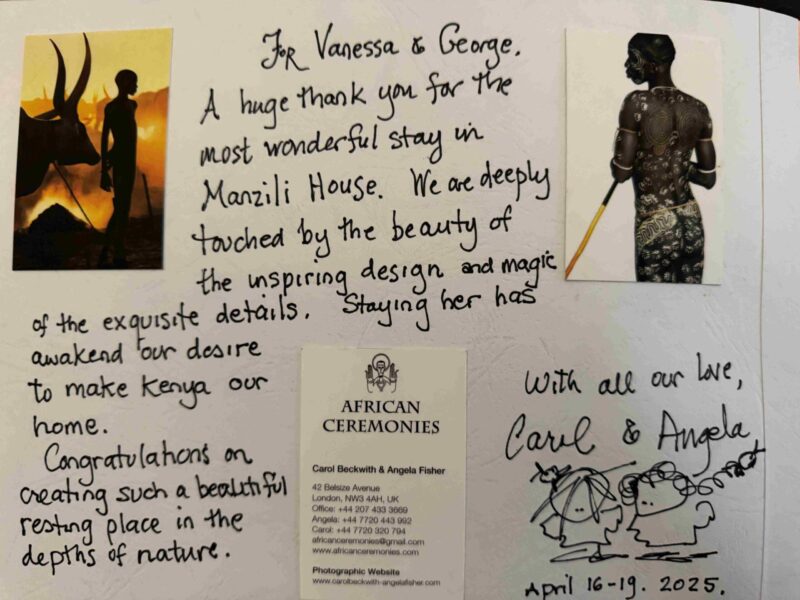 For Vanessa & George.
A huge thank you for the
most wonderful stay in
Manzili House. We are deeply
touched by the beauty of
the inspiring design and magic
of the exquisite details. Staying her has
awakend our desire
to make Kenya our
home.
Congratulations on
creating such a beautiful
resting place in the
depths of nature.
AFRICAN
CEREMONIES
Carol Beckwith & Angela Fisher
42 Belsize Avenue
London, NW3 4AH, UK
Office: +44 207 433 3669
Angela: +44 7720 443 992
Carol: +44 7720 320 794
africanceremonies@gmail.com
www.africanceremonies.com
Photographic Website
www.carolbeckwith-angelafisher.com
With all our love,
Carol & Angela
April 16-19. 2025.